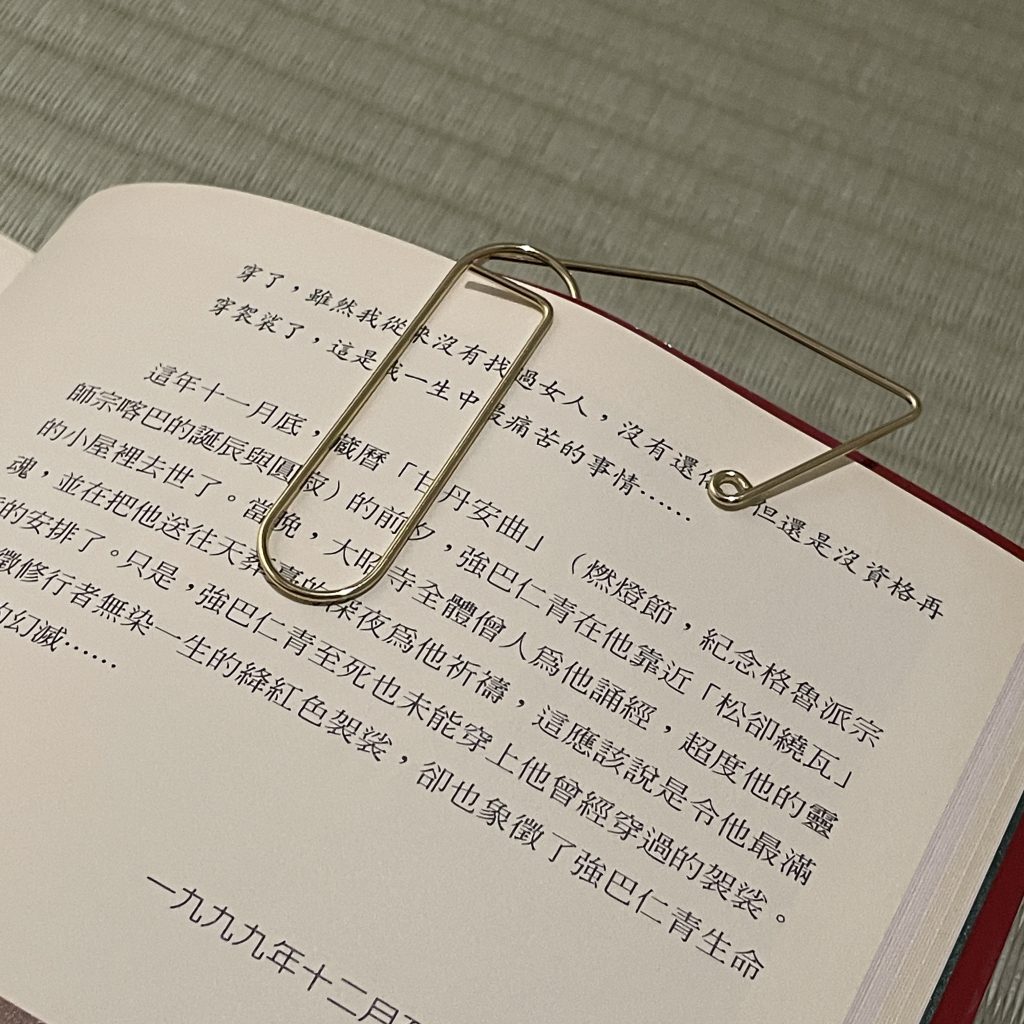 穿了，雖然我從來沒有找過女人，沒有還俗，但還是沒資格再
穿袈裟了，這是我一生中最痛苦的事情……
這年十一月底，藏曆「甘丹安曲」（燃燈節，紀念格魯派宗
師宗喀巴的誕辰與圓寂）的前夕，強巴仁青在他靠近「松卻繞瓦」
的小屋裡去世了。當晚，大昭寺全體僧人爲他誦經，超度他的靈
魂，並在把他送往天葬臺的深夜爲他祈禱，這應該說是令他最滿
的安排了。只是，強巴仁青至死也未能穿上他曾經穿過的袈裟。
徵修行者無染一生的絳紅色袈裟，卻也象徵了強巴仁青生命
的幻滅……
一九九九年十二月